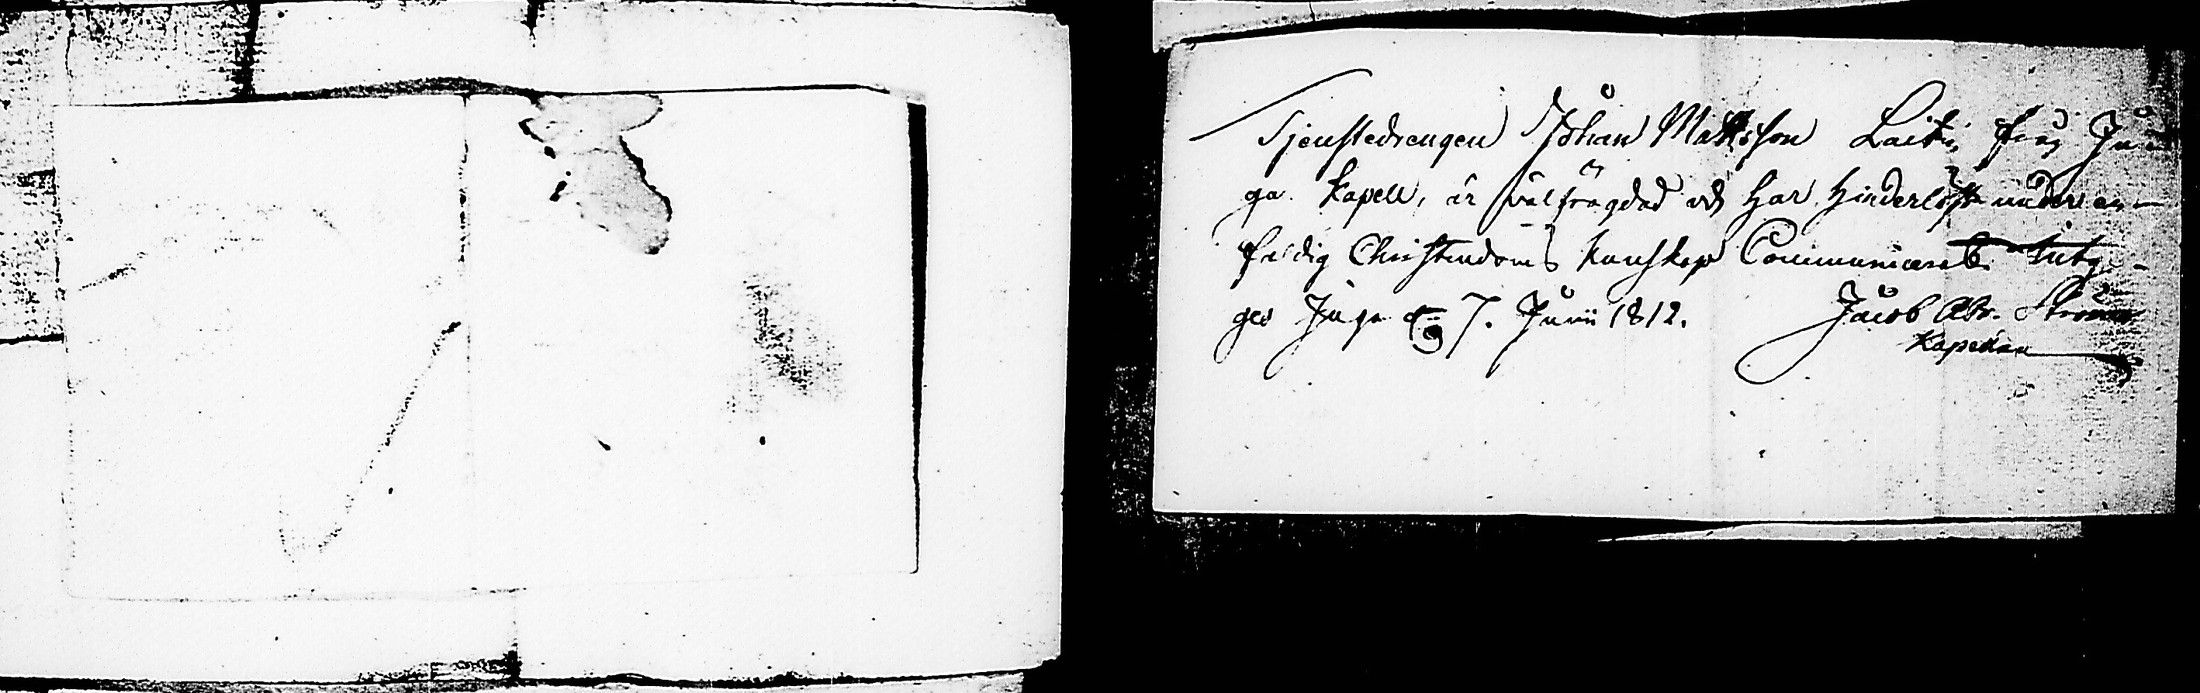 Tjenstedrengen Johan Mattsson Laiti, från Inn-
ga Kapell, är välfrägdad och har hinderlöst under an-
ständig Christendoms kunskap Communicerat. intyg-
ges Inga d. 7. Junii 1812. Jacob Abr. Ström
Kapellan